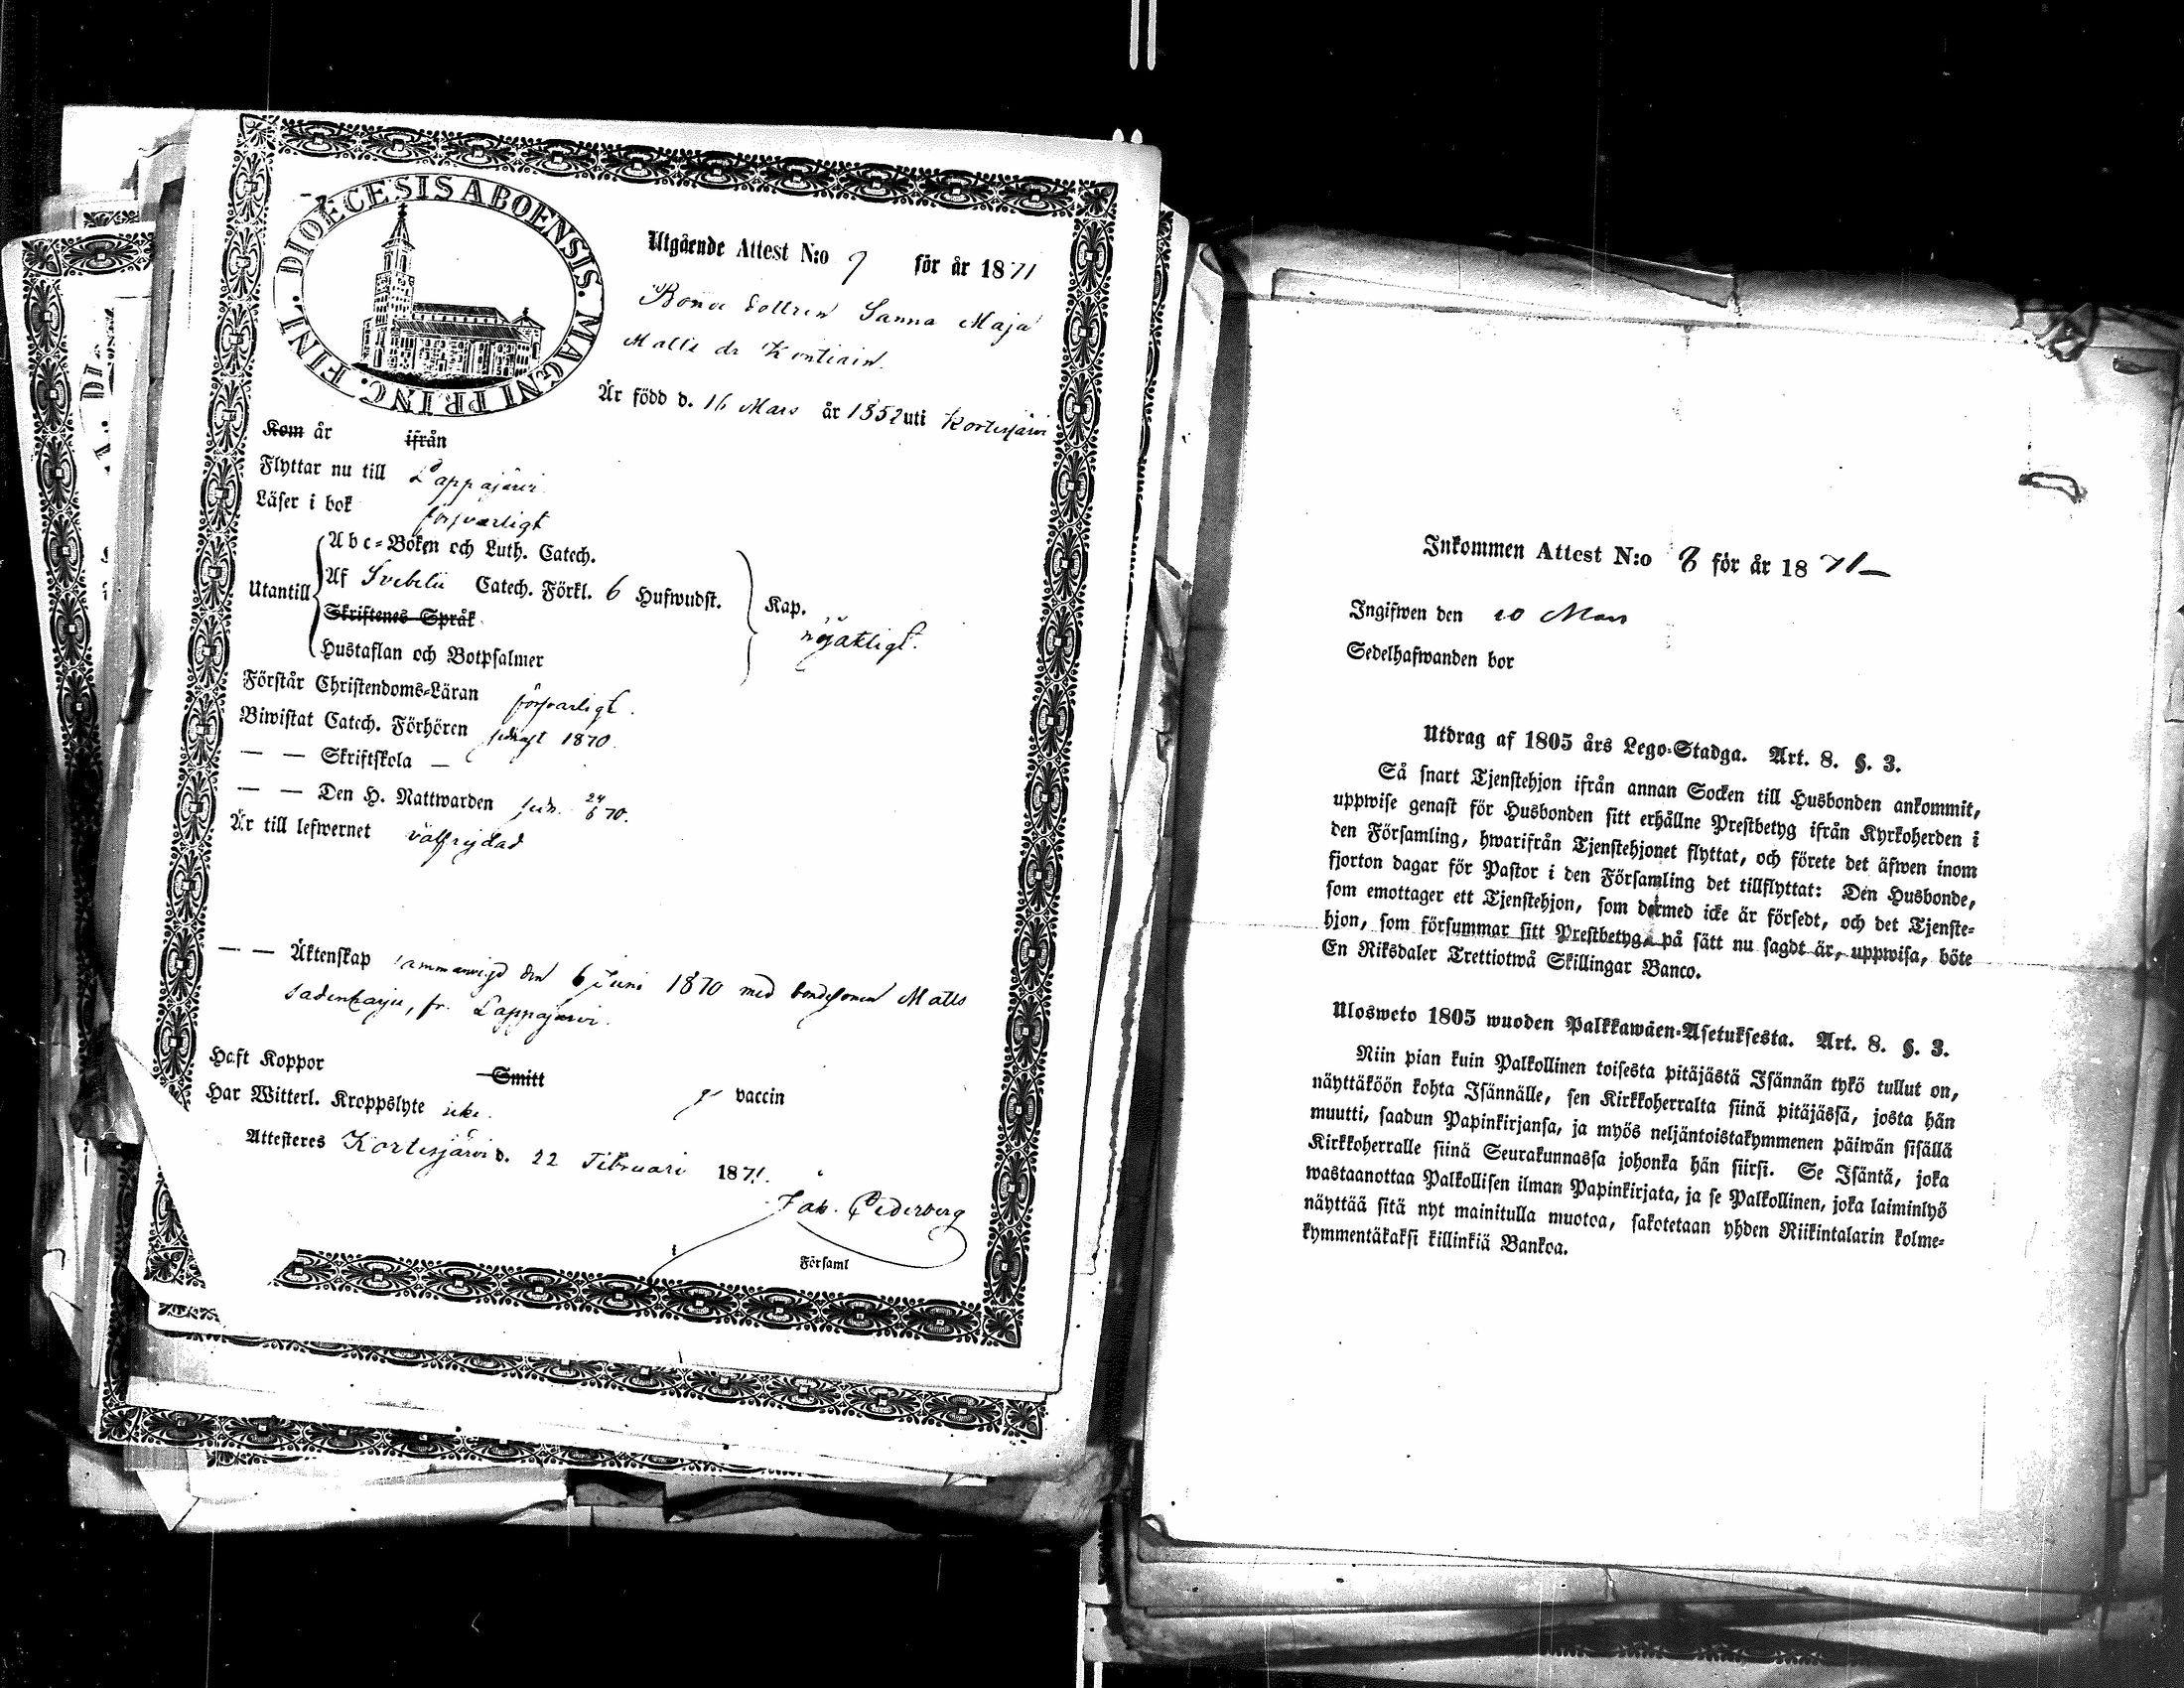 DIOECESIS ABOENSIS. MAGNI PRINC. FINL.
Utgående Attest N:o 7 för år 1871
Bonde dottren Sanna Maja
Matts dr Kontiain.
Är född d. 16 Mars år 1852 uti Kortesjärvi
Kom år ifrån
Flyttar nu till Lappajärvi
Läser i bok försvarligt
Utantill
Abc-Boken och Luth. Catech.
Af Svebelii Catech. Förkl. 6 Hufwudst.
Skriftenes Språk
Hustaflan och Botpsalmer
Kap.
nöjaktligt.
Förstår Christendoms-Läran försvarligt.
Biwistat Catech. Förhören sednast 1870
— — Skriftskola —
— — Den H. Nattwarden sedn. 24/6 70.
Är till lefwernet välfrejdad
— — Äktenskap sammanvigd den 6 Juni 1870 med bondesonen Matts
fr. Lappajärvi.
Haft Koppor Smitt vaccin
Har Witterl. Kroppslyte icke.
Attesteres Kortesjärvi d. 22 Februari 1871.
Jak. Cederberg
Församl
Inkommen Attest N:o 8 för år 1871
Ingifwen den 10 Mars
Sedelhafwanden bor
Utdrag af 1805 års Lego-Stadga. Art. 8. §. 3.
Så snart Tjenstehjon ifrån annan Socken till Husbonden ankommit,
uppwise genast för Husbonden sitt erhållne Prestbetyg ifrån Kyrkoherden i
den Församling, hwarifrån Tjenstehjonet flyttat, och förete det äfwen inom
fjorton dagar för Pastor i den Församling det tillflyttat: Den Husbonde,
som emottager ett Tjenstehjon, som dermed icke är försedt, och det Tjenste-
hjon, som försummar sitt Prestbetyg, på sätt nu sagdt är, uppwisa, böte
En Riksdaler Trettiotwå Skillingar Banco.
Ulosweto 1805 wuoden Palkkawäen-Asetuksesta. Art. 8. §. 3.
Niin pian kuin Palkollinen toisesta pitäjästä Isännän tykö tullut on,
näyttäköön kohta Isännälle, sen Kirkkoherralta siinä pitäjässä, josta hän
muutti, saadun Papinkirjansa, ja myös neljäntoistakymmenen päiwän sisällä
Kirkkoherralle siinä Seurakunnassa johonka hän siirsi. Se Isäntä, joka
wastaanottaa Palkollisen ilman Papinkirjata, ja se Palkollinen, joka laiminlyö
näyttää sitä nyt mainitulla muotoa, sakotetaan yhden Riikintalarin kolme-
kymmentäkaksi killinkiä Bankoa.